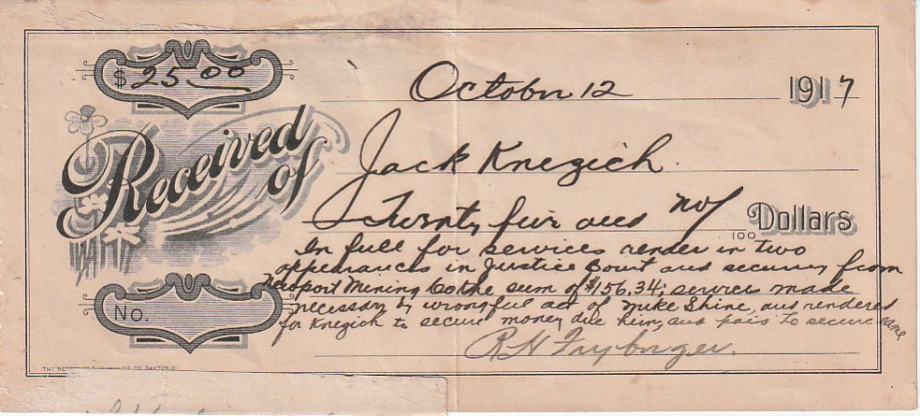 $25.00
October 12 1917
Received of Jack Knezich.
Twenty five and no/100 Dollars
In full for services render in two
appearances in Justice Court and securing from
Newport Mining Co the sum of $156.34; services made
necessary by wrongful act of Mike Shine, and rendered
for Knezich to secure money due him, and pais to secure same
No.
R H